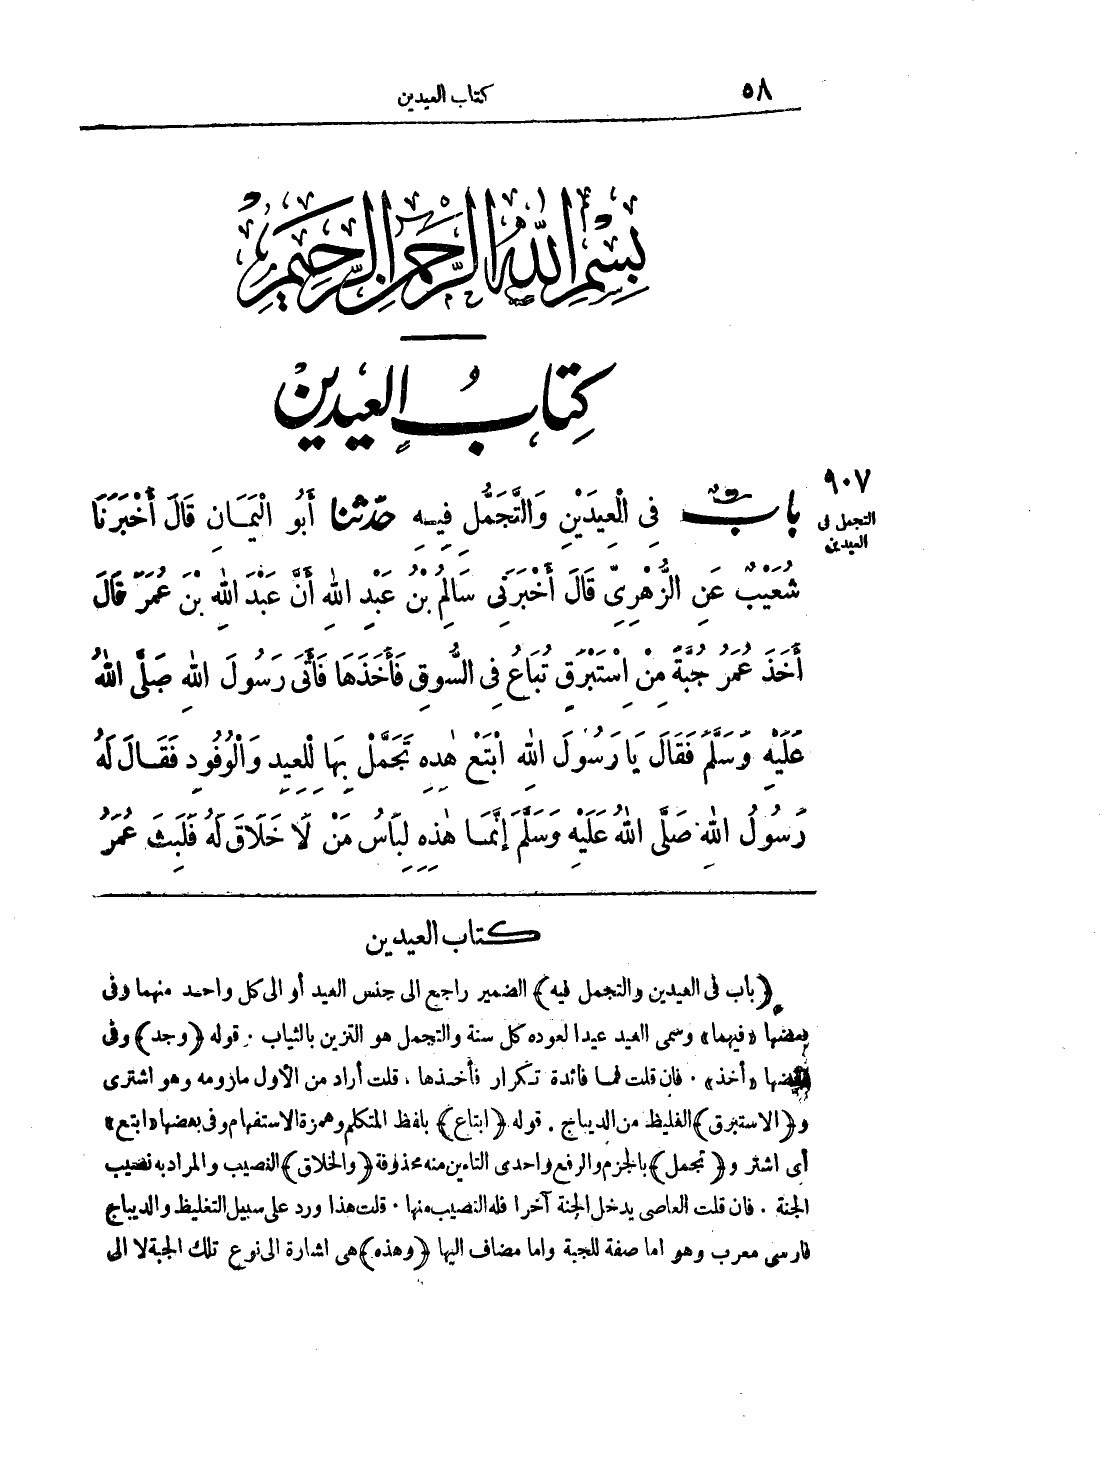 ٥٨
كتاب العيدين
بِسْمِ اللهِ الرَّحْمٰنِ الرَّحِيْمِ
كِتَابُ العيدين
٩٠٧
التجمل فى
العيدين
بابٌ فِى الْعِيدَيْنِ وَالتَّجَمُّلِ فِيهِ حَدَّثَنَا أَبُو الْيَمَانِ قَالَ أَخْبَرَنَا
شُعَيْبٌ عَنِ الزُّهْرِىِّ قَالَ أَخْبَرَنِى سَالِمُ بْنُ عَبْدِ اللهِ أَنَّ عَبْدَ اللهِ بْنَ عُمَرَ قَالَ
أَخَذَ عُمَرُ جُبَّةً مِنْ اِسْتَبْرَقٍ تُبَاعُ فِى السُّوقِ فَأَخَذَهَا فَأَتَى رَسُولَ اللهِ صَلَّى اللهُ
عَلَيْهِ وَسَلَّمَ فَقَالَ يَا رَسُولَ اللهِ ابْتَعْ هٰذِهِ تَجَمَّلْ بِهَا لِلْعِيدِ وَالْوُفُودِ فَقَالَ لَهُ
رَسُولُ اللهِ صَلَّى اللهُ عَلَيْهِ وَسَلَّمَ إِنَّمَا هٰذِهِ لِبَاسُ مَنْ لَا خَلَاقَ لَهُ فَلَبِثَ عُمَرُ
كتاب العيدين
﴿باب فى العيدين والتجمل فيه﴾ الضمير راجع الى جنس العيد أو الى كل واحد منهما وفى
بعضها «فيهما» وسمى العيد عيدا لعوده كل سنة والتجمل هو التزين بالثياب . قوله ﴿وجد﴾ وفى
بعضها «أخذ» . فان قلت فما فائدة تكرار فأخذها . قلت أراد من الأول ملزومه وهو اشترى
و﴿الاستبرق﴾ الغليظ من الديباج . قوله ﴿ابتاع﴾ بلفظ المتكلم وهمزة الاستفهام وفى بعضها «ابتع»
أى اشتر و﴿تجمل﴾ بالجزم والرفع واحدى التاءين منه محذوفة ﴿والخلاق﴾ النصيب والمراد به نصيب
الجنة . فان قلت العاصى يدخل الجنة آخرا فله النصيب منها . قلت هذا ورد على سبيل التغليظ والديباج
فارسى معرب وهو اما صفة للجبة واما مضاف اليها ﴿وهذه﴾ هى اشارة الى نوع تلك الجبة لا الى